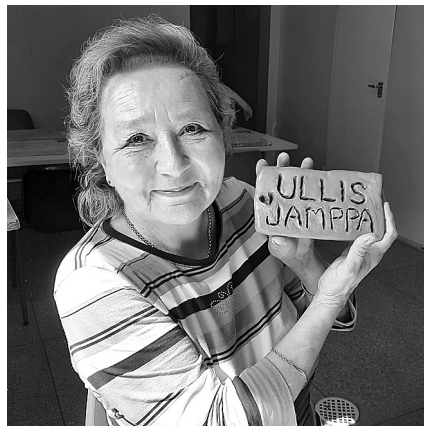 ULLIS
JAMPPA